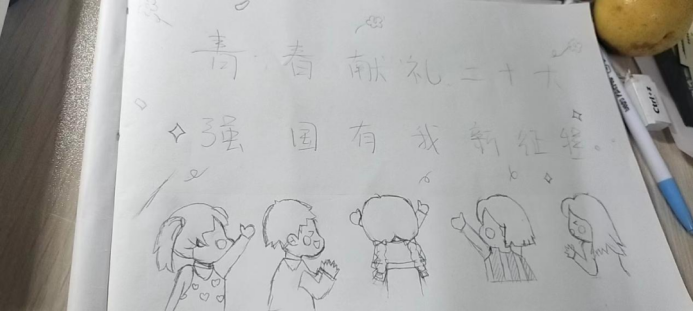 青春献礼二十大
强国有我新征程。